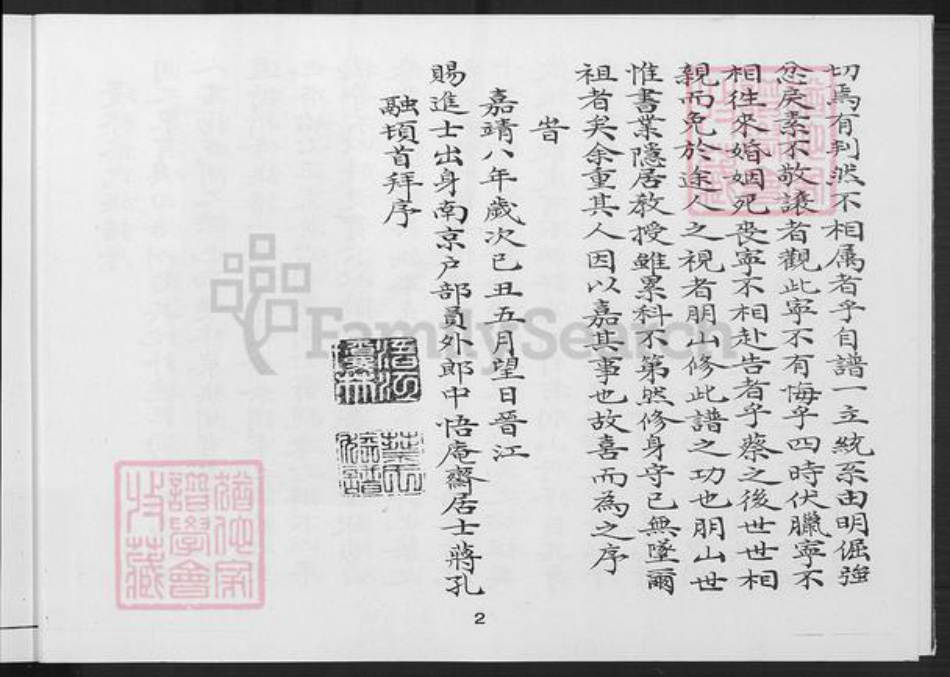 切焉有判然不相属者乎自譜一立統系由明倔強
忿戾素不敬讓者觀此寧不有悔乎四時伏臘寧不
相徃來婚姻死丧寧不相赴告者乎蔡之後世世相
親而免於途人之視者朋山修此譜之功也朋山世
惟書業隱居敎授雖累科不第然修身守已無墜爾
祖者矣余重其人因以嘉其事也故喜而為之序
旹
嘉靖八年歲次已丑五月望日晉江
賜進士出身南京户部員外郎中悟庵齋居士蔣孔
融頓首拜序
譜學會
收藏
FamilySearch
2